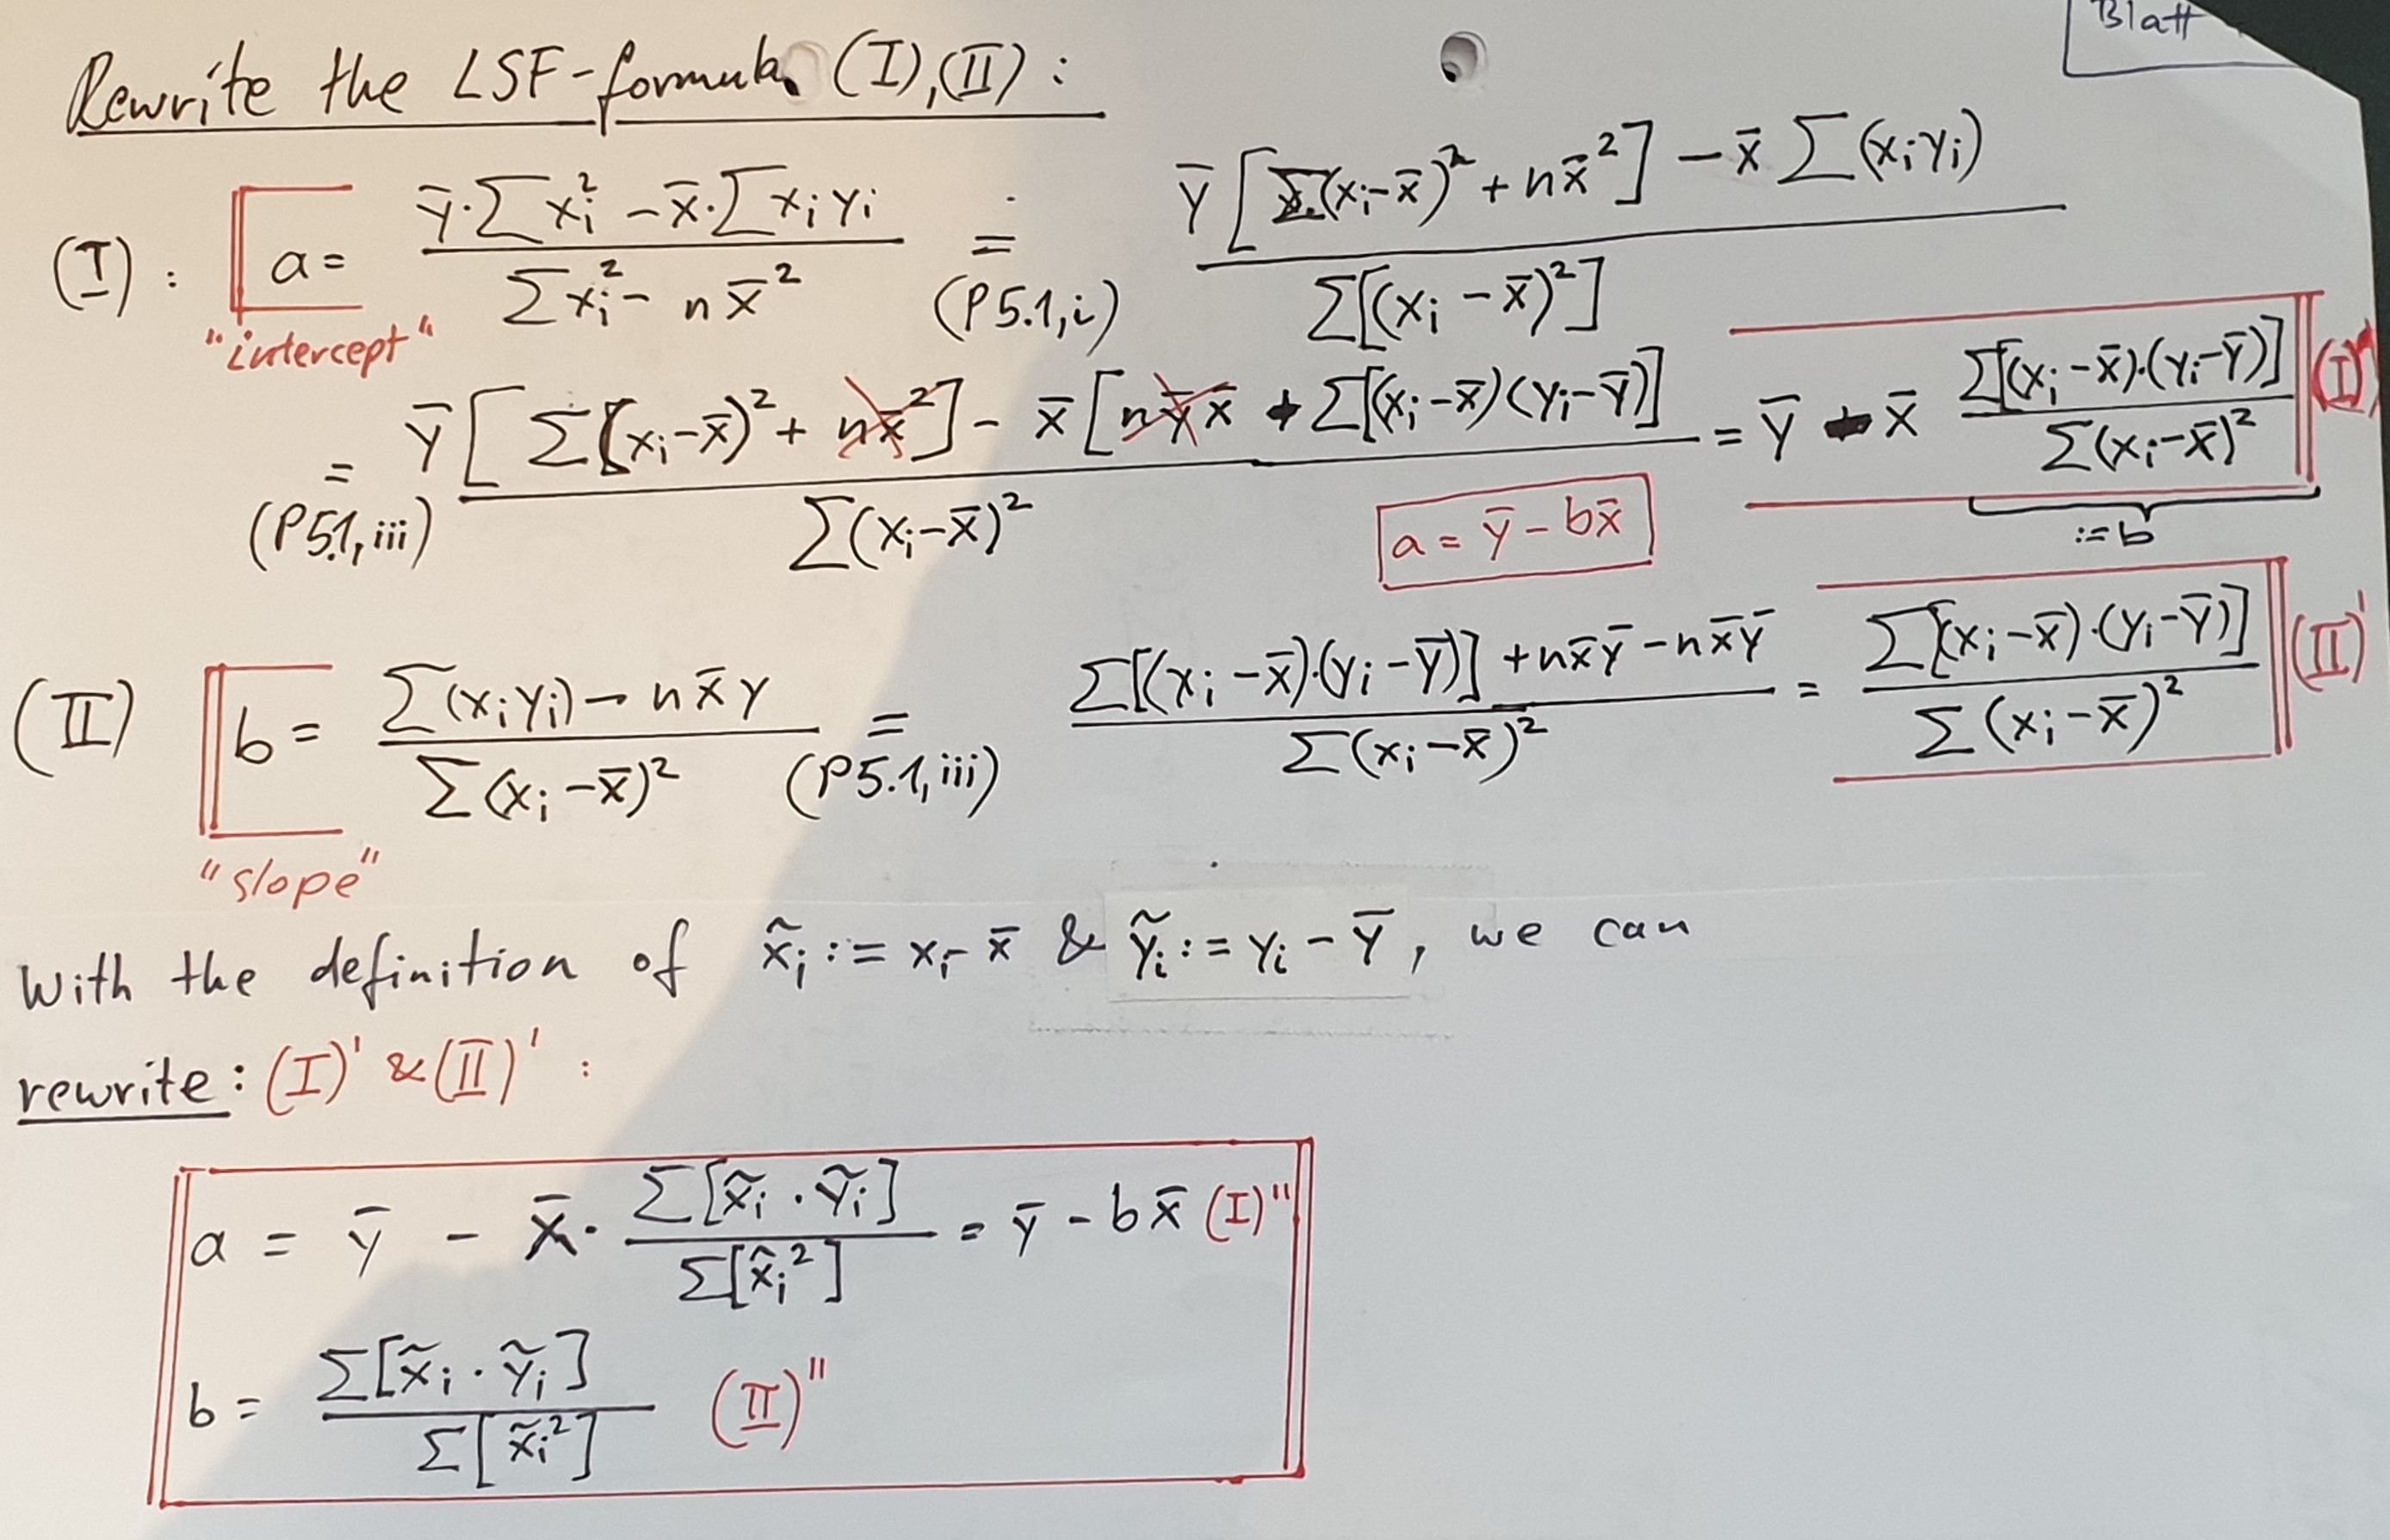 Blatt
Rewrite the LSF-formula (I),(II) :
(I) : a = (ȳ·∑xᵢ² − x̄·∑xᵢyᵢ) / (∑xᵢ² − n x̄²) = (P5.1,i) (ȳ[∑(xᵢ−x̄)² + nx̄²] − x̄ ∑(xᵢyᵢ)) / (∑[(xᵢ−x̄)²])
"intercept"
= (P5.1,iii) (ȳ[∑(xᵢ−x̄)² + nx̄²] − x̄[nȳx̄ + ∑[(xᵢ−x̄)(yᵢ−ȳ)]) / (∑(xᵢ−x̄)²) = ȳ − x̄ (∑[(xᵢ−x̄)·(yᵢ−ȳ)]) / (∑(xᵢ−x̄)²) (I)'
a = ȳ − bx̄ := b
(II) b = (∑(xᵢyᵢ) − n x̄ y) / (∑(xᵢ−x̄)²) = (P5.1,iii) (∑[(xᵢ−x̄)·(yᵢ−ȳ)] + nx̄ȳ − nx̄ȳ) / (∑(xᵢ−x̄)²) = (∑[(xᵢ−x̄)·(yᵢ−ȳ)]) / (∑(xᵢ−x̄)²) (II)'
"slope"
With the definition of x̃ᵢ := xᵢ− x̄ & ỹᵢ := yᵢ − ȳ, we can
rewrite: (I)' & (II)' :
a = ȳ − x̄· (∑[x̃ᵢ · ỹᵢ]) / (∑[x̃ᵢ²]) = ȳ − b x̄ (I)"
b = (∑[x̃ᵢ · ỹᵢ]) / (∑[x̃ᵢ²]) (II)"